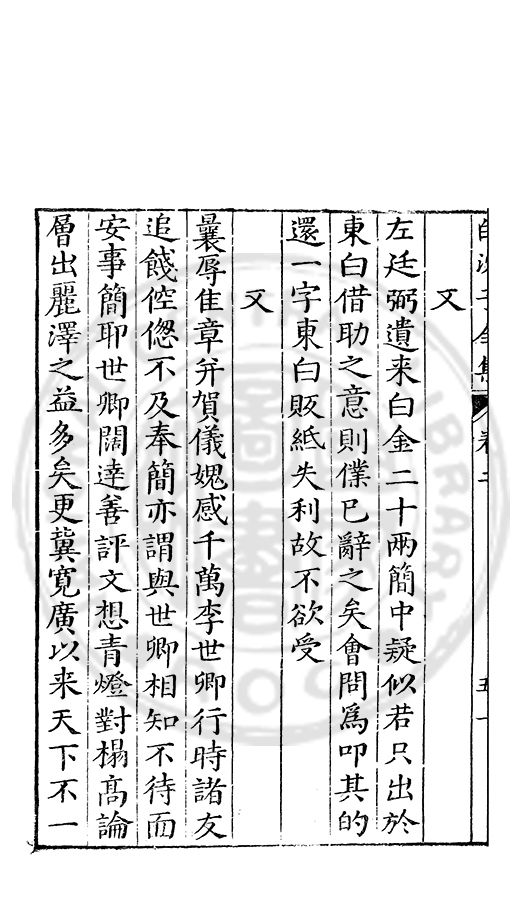 白沙子全集 卷二
又
左廷弼遺来白金二十兩簡中疑似若只出於
東白借助之意則僕已辭之矣會問爲叩其的
還一字東白販紙失利故不欲受
又
曩辱隹章并賀儀媿感千萬李世卿行時諸友
追餞倥偬不及奉簡亦謂與世卿相知不待面
安事簡耶世卿闊達善評文想青燈對榻髙論
層出麗澤之益多矣更冀寛廣以来天下不一